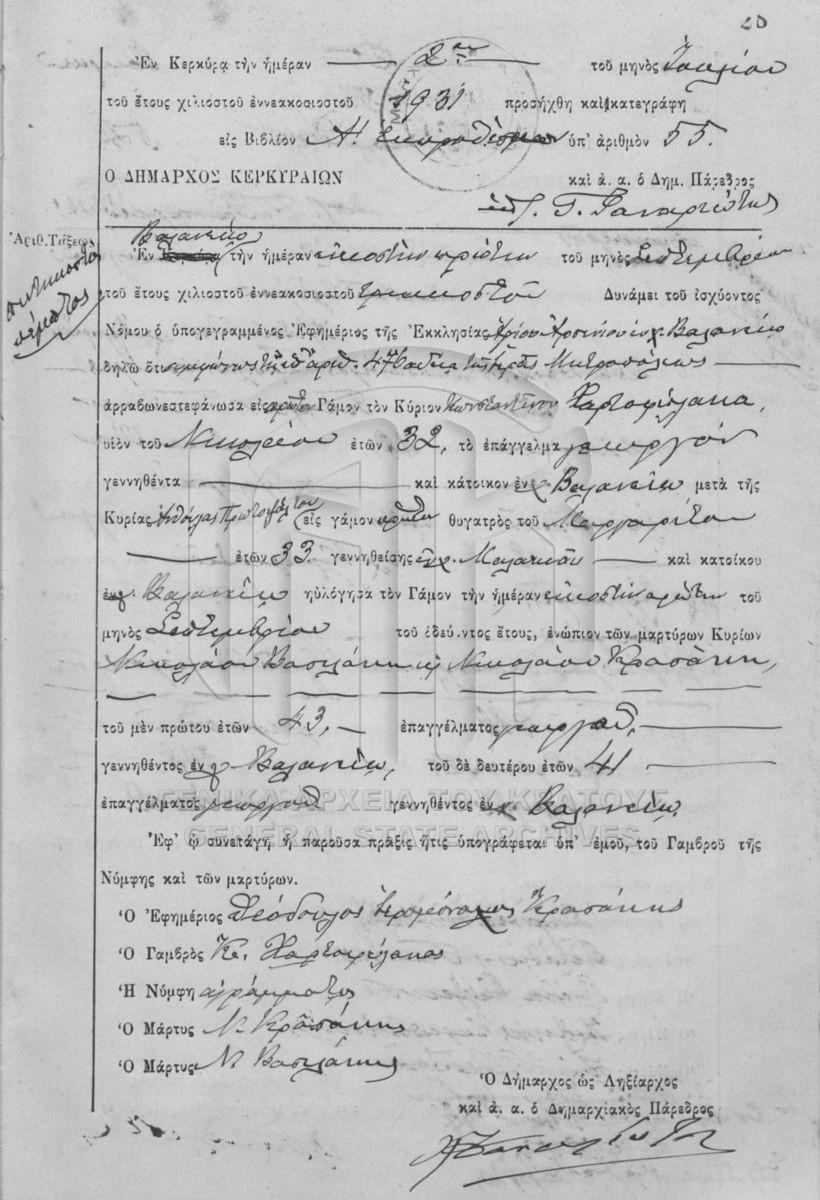 Ἐν Κερκύρᾳ τὴν ἡμέραν 2αν τοῦ μηνὸς Ἰουλίου
τοῦ ἔτους χιλιοστοῦ ἐννεακοσιοστοῦ 1931 προσήχθη καὶ κατεγράφη
εἰς Βιβλίον Α! ἐκπροθέσμων ὑπ' ἀριθμὸν 55.
Ο ΔΗΜΑΡΧΟΣ ΚΕΡΚΥΡΑΙΩΝ
καὶ ἀ. α. ὁ Δημ. Πάρεδρος
Ἀριθ. Τάξεως
πεντηκοστὸς
πέμπτος
Βαλανείῳ
Ἐν Κερκύρᾳ τὴν ἡμέραν εἰκοστὴν πρώτην τοῦ μηνὸς Σεπτεμβρίου
τοῦ ἔτους χιλιοστοῦ ἐννεακοσιοστοῦ τριακοστοῦ Δυνάμει τοῦ ἰσχύοντος
Νόμου ὁ ὑπογεγραμμένος Ἐφημέριος τῆς Ἐκκλησίας Ἁγίου Ἀρσενίου ἐν χ. Βαλανείῳ
δηλῶ ὅτι συμφώνως τῇ ὑπ' ἀριθ. 476 ἀδείᾳ τῆς Ἱερᾶς Μητροπόλεως
ἀρραβωνεστεφάνωσα εἰς πρῶτον Γάμον τὸν Κύριον Κωνσταντῖνον Χαρτοφύλακα,
υἱὸν τοῦ Νικολάου ἐτῶν 32, τὸ ἐπάγγελμα γεωργόν
γεννηθέντα καὶ κάτοικον ἐν χ. Βαλανείῳ μετὰ τῆς
Κυρίας Ἀνθούλας Πρωτοψάλτου εἰς γάμον πρῶτον θυγατρὸς τοῦ Μαργαρίτου
ἐτῶν 33 γεννηθείσης ἐν χ. καὶ κατοίκου
ἐν χ. Βαλανείῳ ηὐλόγησα τὸν Γάμον τὴν ἡμέραν εἰκοστὴν πρώτην τοῦ
μηνὸς Σεπτεμβρίου τοῦ ὁδεύοντος ἔτους, ἐνώπιον τῶν μαρτύρων Κυρίων
Νικολάου Βασιλάκη κ Νικολάου Κρασάκη,
τοῦ μὲν πρώτου ἐτῶν 43, ἐπαγγέλματος γεωργοῦ,
γεννηθέντος ἐν χ Βαλανείῳ, τοῦ δὲ δευτέρου ἐτῶν 41
ἐπαγγέλματος γεωργοῦ γεννηθέντος ἐν χ. Βαλανείῳ.
ΓΕΝΙΚΑ ΑΡΧΕΙΑ ΤΟΥ ΚΡΑΤΟΥΣ
GENERAL STATE ARCHIVES
Ἐφ' ᾧ συνετάγη ἡ παροῦσα πρᾶξις ἥτις ὑπογράφεται ὑπ' ἐμοῦ, τοῦ Γαμβροῦ τῆς
Νύμφης καὶ τῶν μαρτύρων.
Ὁ Ἐφημέριος Θεόδουλος ἱερομόναχος Κρασάκης
Ὁ Γαμβρὸς Κ. Χαρτοφύλακας
Ἡ Νύμφη ἀγράμματος
Ὁ Μάρτυς Ν. Κρασάκης
Ὁ Μάρτυς Ν. Βασιλάκης
Ὁ Δήμαρχος ὡς Ληξίαρχος
καὶ ἀ. α. ὁ Δημαρχιακὸς Πάρεδρος